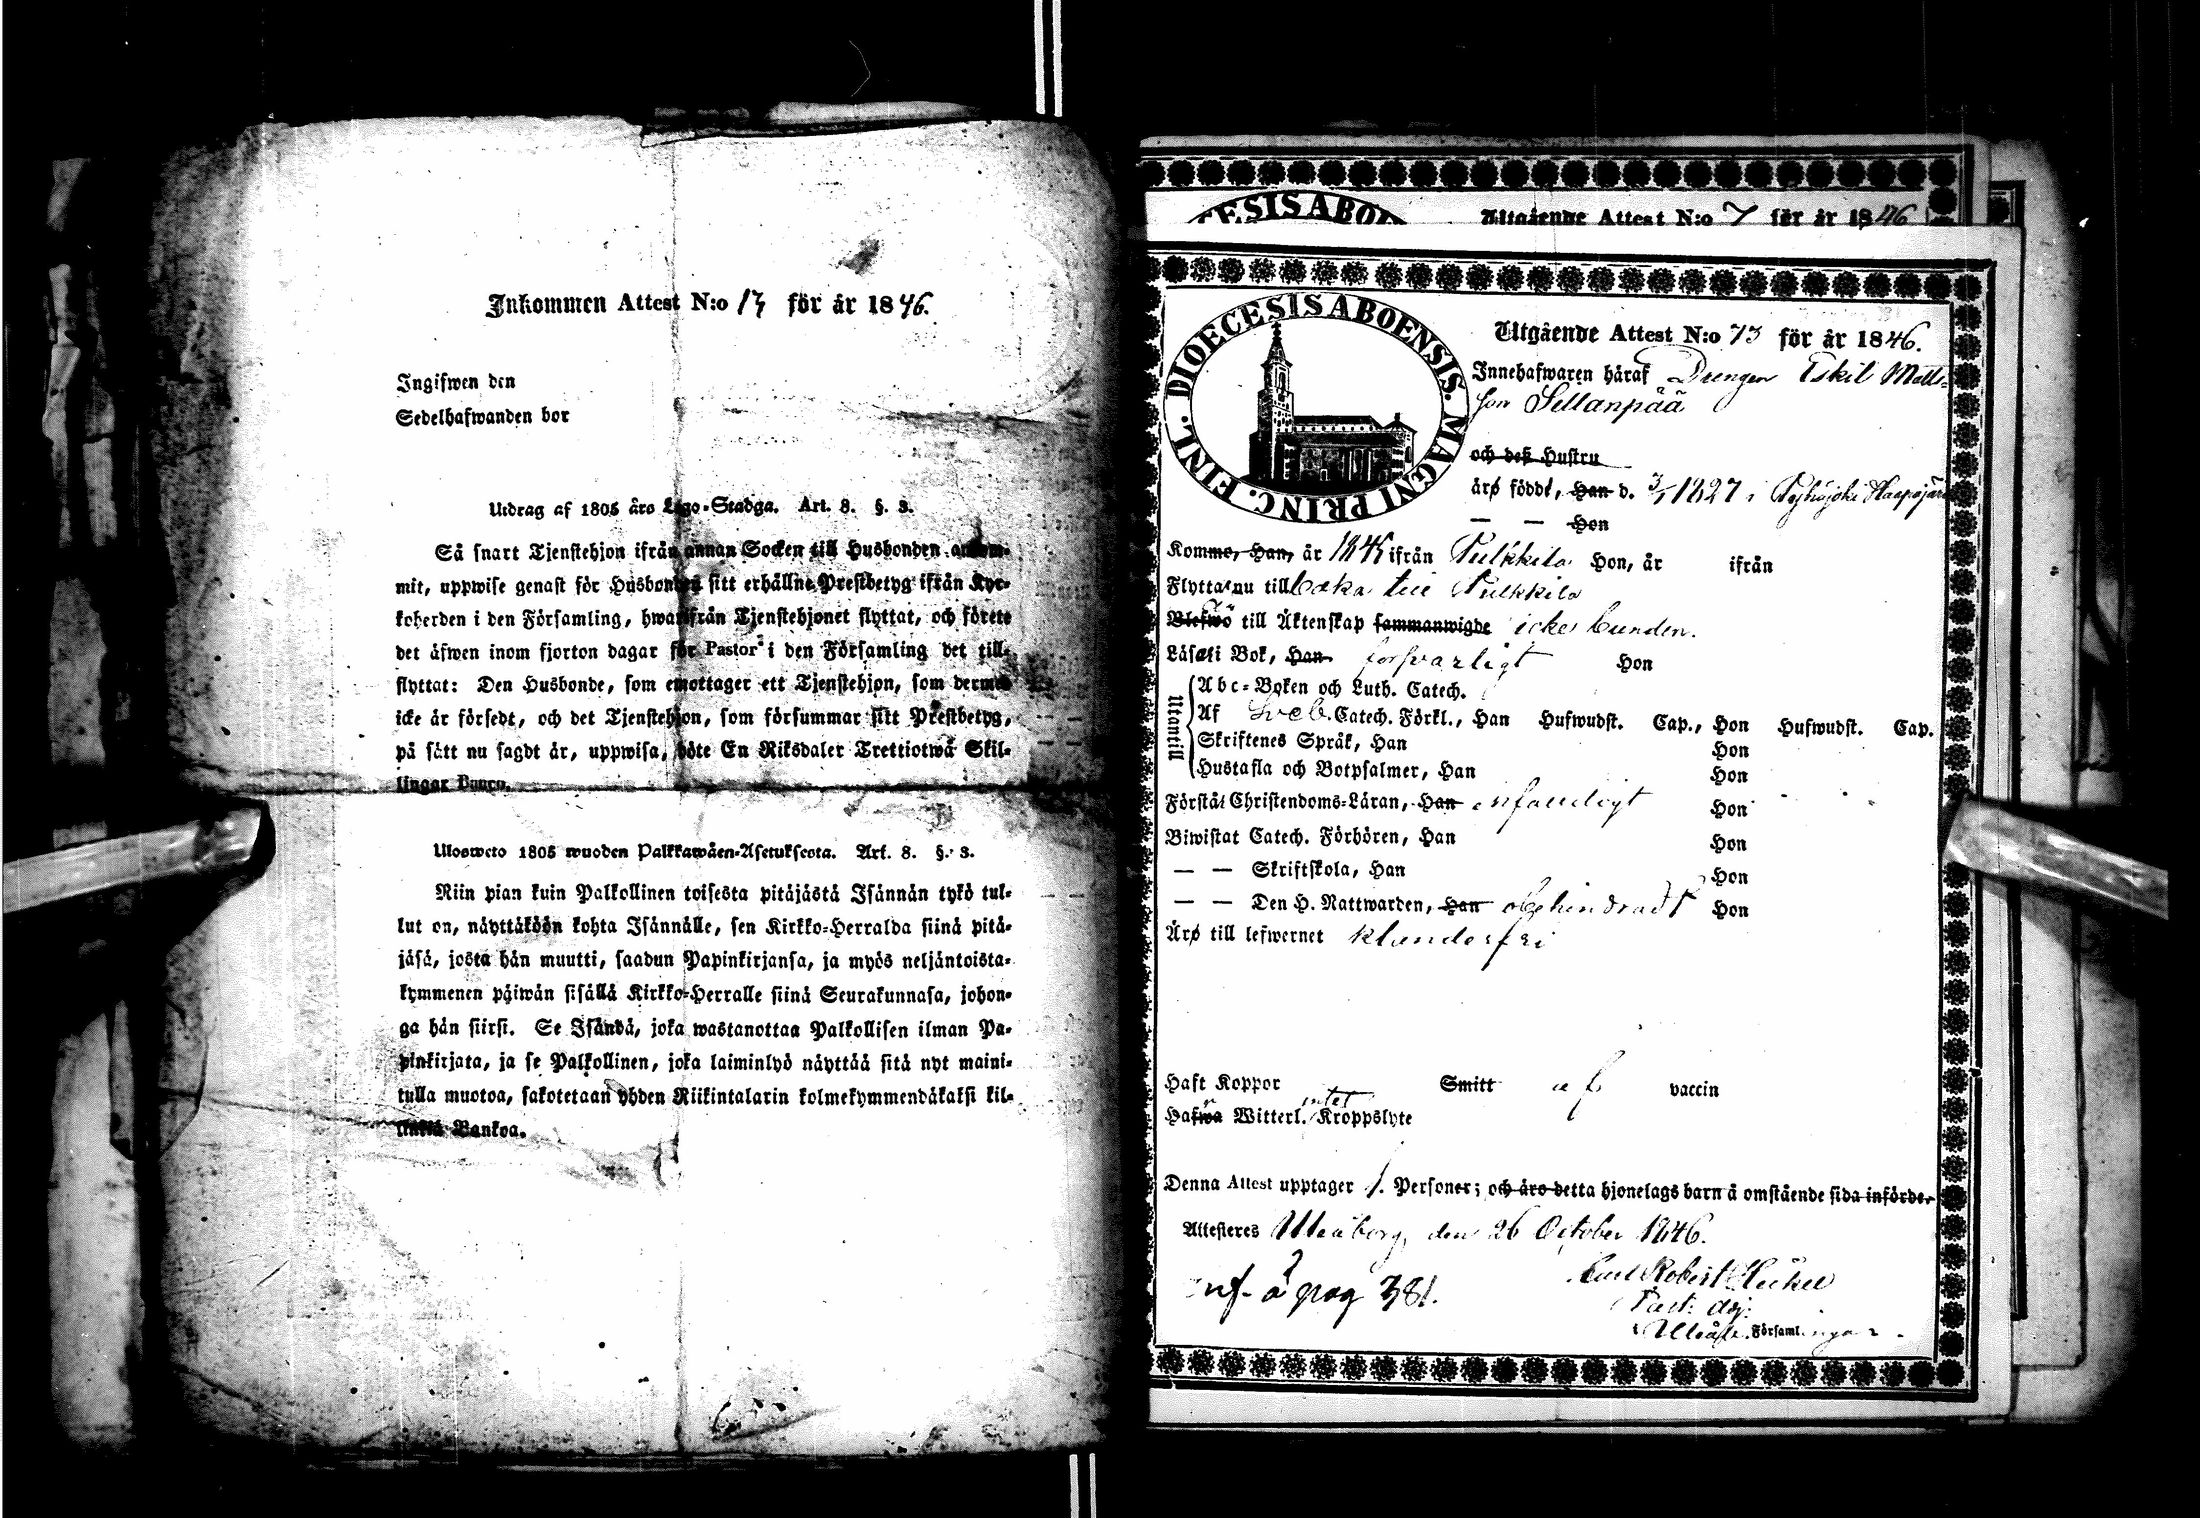 Inkommen Attest N:o 13 för år 1846.
Ingifwen den
Sedelhafwanden bor
Utdrag af 1805 års Lego-Stadga. Art. 8. §. 3.
Så snart Tjenstehjon ifrån annan Socken till Husbonden ankom-
mit, uppwise genast för Husbonden sitt erhållne Prestbetyg ifrån Kyr-
koherden i den Församling, hwarifrån Tjenstehjonet flyttat, och förete
det äfwen inom fjorton dagar för Pastor i den Församling det till-
flyttat: Den Husbonde, som emottager ett Tjenstehjon, som dermed
icke är försedt, och det Tjenstehjon, som försummar sitt Prestbetyg,
på sätt nu sagdt är, uppwisa, böte En Riksdaler Trettiotwå Skil-
lingar Banco.
Ulosweto 1805 wuoden Palkkawäen-Asetuksesta. Art. 8. §. 3.
Niin pian kuin Palkollinen toisesta pitäjästä Isännän tykö tul-
lut on, näyttäköön kohta Isännälle, sen Kirkko-Herralda siinä pitä-
jäsä, josta hän muutti, saadun Papinkirjansa, ja myös neljäntoista-
kymmenen päiwän sisällä Kirkko-Herralle siinä Seurakunnasa, johon-
ga hän siirsi. Se Isändä, joka wastanottaa Palkollisen ilman Pa-
pinkirjata, ja se Palkollinen, joka laiminlyö näyttää sitä nyt maini-
tulla muotoa, sakotetaan yhden Riikintalarin kolmekymmendäkaksi kil-
lingiä Bankoa.
ESIS ABOE
Utgående Attest N:o 7 för år 1846
DIOECESIS ABOENSIS. MAGNI PRINC. FINL.
Utgående Attest N:o 73 för år 1846.
Innehafwaren häraf Drengen Eskil Matts-
son Sillanpää
och deß Hustru
äro född, Han d. 3/5 1827 i Pyhäjoki Haapajär
— — Hon
Kommo, Han, år 1845 ifrån Pulkkila Hon, år ifrån
Flyttar nu till baka till Pulkkila
Blefwo till Äktenskap sammanwigde icke bunden.
Läser i Bok, Han försvarligt Hon
Utantill
Abc-Boken och Luth. Catech.
Af Sveb. Catech. Förkl., Han Hufwudst. Cap., Hon Hufwudst. Cap.
Skriftenes Språk, Han Hon
Hustafla och Botpsalmer, Han Hon
Förstår Christendoms-Läran, Han enfaldigt Hon
Biwistat Catech. Förhören, Han Hon
— — Skriftskola, Han Hon
— — Den H. Nattwarden, Han obehindradt Hon
Äro till lefwernet klanderfri
Haft Koppor Smitt af vaccin
Hafwa Witterl. intet Kroppslyte
Denna Attest upptager 1. Personer; och äro detta hjonelags barn å omstående sida införde.
Attesteres Uleåborg, den 26 October 1846.
Carl Robert Heikel
Past: Adj:
Inf. å pag 381.
Uleåb. Församlingar.